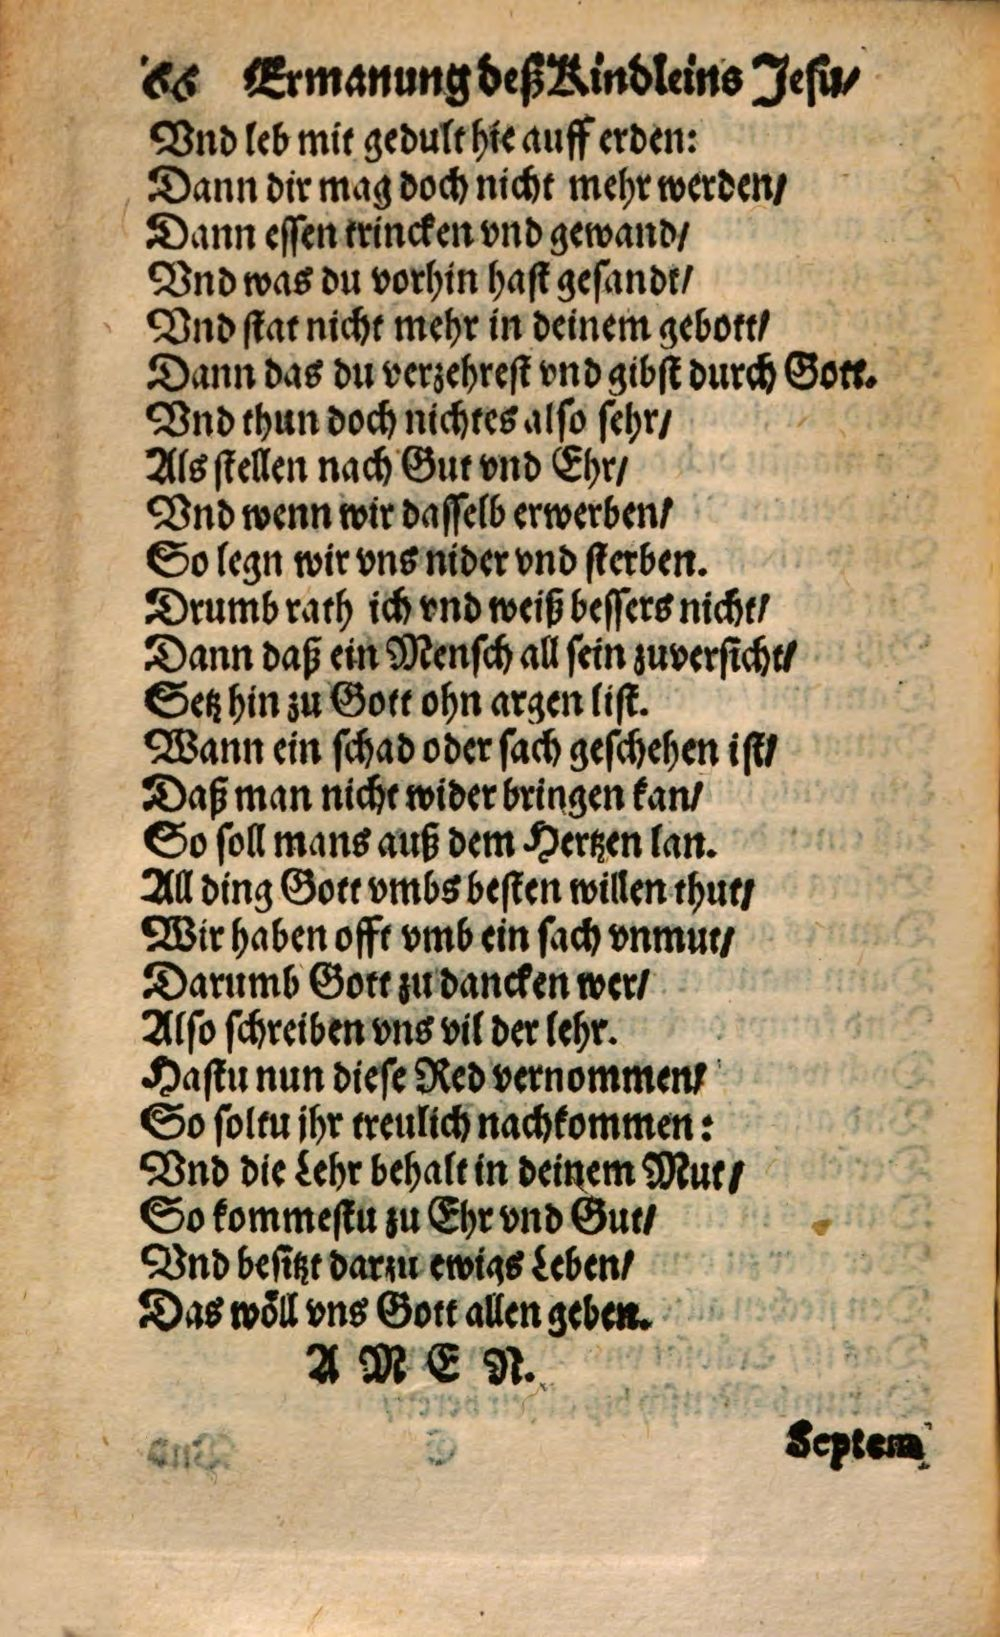 66 Ermanung deß Kindleins Jesu/
Vnd leb mit gedult hie auff erden:
Dann dir mag doch nicht mehr werden/
Dann essen trincken vnd gewand/
Vnd was du vorhin hast gesandt/
Vnd stat nicht mehr in deinem gebott/
Dann das du verzehrest vnd gibst durch Gott.
Vnd thun doch nichtes also sehr/
Als stellen nach Gut vnd Ehr/
Vnd wenn wir dasselb erwerben/
So legn wir vns nider vnd sterben.
Drumb rath ich vnd weiß bessers nicht/
Dann daß ein Mensch all sein zuversicht/
Setz hin zu Gott ohn argen list.
Wann ein schad oder sach geschehen ist/
Daß man nicht wider bringen kan/
So soll mans auß dem Hertzen lan.
All ding Gott vmbs besten willen thut/
Wir haben offt vmb ein sach vnmut/
Darumb Gott zu dancken wer/
Also schreiben vns vil der lehr.
Hastu nun diese Red vernommen/
So soltu jhr treulich nachkommen:
Vnd die Lehr behalt in deinem Mut/
So kommestu zu Ehr vnd Gut/
Vnd besitzt darzu ewigs Leben/
Das wöll vns Gott allen geben.
A M E N.
Septem